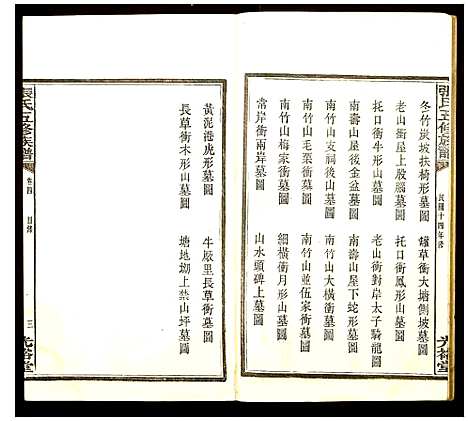 張氏五修族譜
民國十四年修
光裕堂
冬竹炭坡扶椅形墓圖
罐草衝大塘側坡墓圖
老山衝屋上股腦墓圖
托口衝鳳形山墓圖
托口衝牛形山墓圖
此衝對岸太子騎龍圖
南壽山屋後金盆墓圖
南壽山屋下蛇形墓圖
南竹山支祠後山墓圖
南竹山大橫衝墓圖
南竹山毛栗衝墓圖
南竹山並伍家衝墓圖
南竹山梅家衝墓圖
細橫衝月形山墓圖
常岸衝兩岸墓圖
山水頭碑上墓圖
黃泥港虎形墓圖
牛厰里長草衝墓圖
長草衝木形山墓圖
塘地坳上禁山坪墓圖
張氏五修族譜
卷四
目錄
三
光裕堂